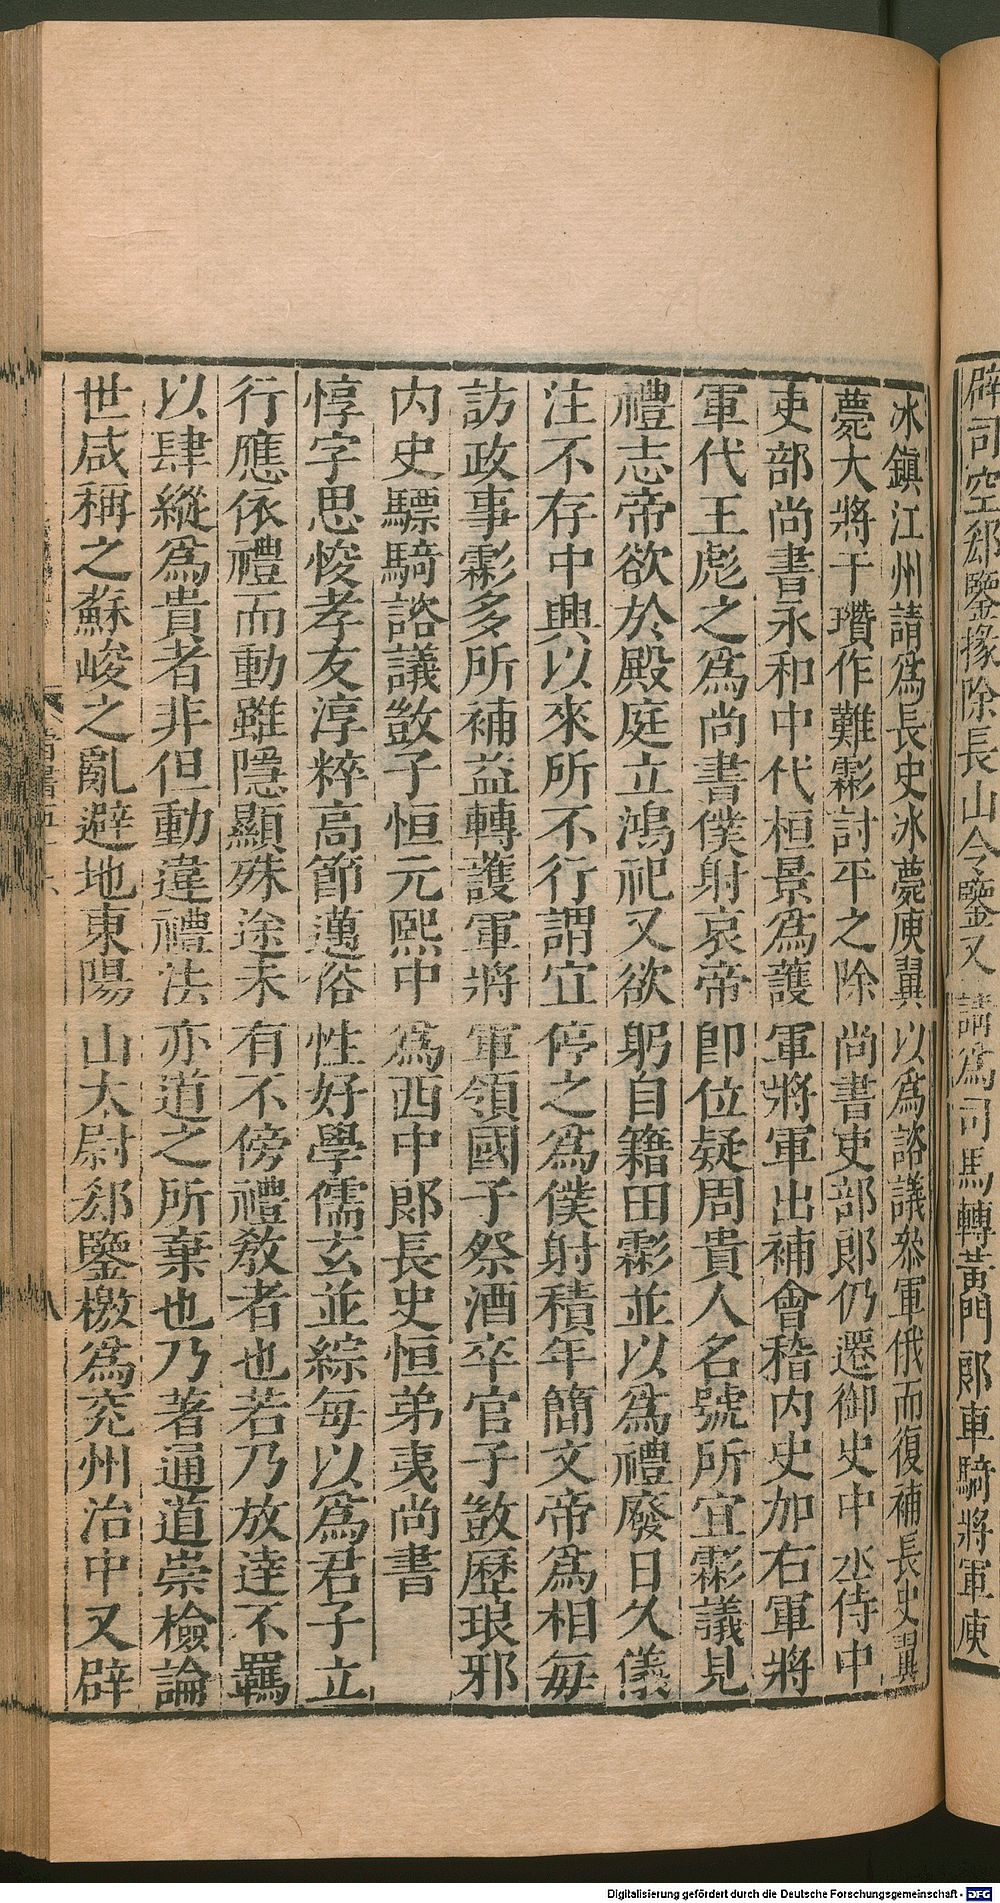 辟司空郄鑒掾除長山令鑒又請爲司馬轉黃門郎車騎將軍庾
冰鎮江州請爲長史冰薨庾翼以爲諮議叅軍俄而復補長史翼
薨大將干瓚作難虨討平之除尚書吏部郎仍遷御史中丞侍中
吏部尚書永和中代桓景爲護軍將軍出補會稽內史加右軍將
軍代王彪之爲尚書僕射哀帝即位疑周貴人名號所宜虨議見
禮志帝欲於殿庭立鴻祀又欲躬自籍田虨並以爲禮廢日久儀
注不存中興以來所不行謂宜停之爲僕射積年簡文帝爲相每
訪政事虨多所補益轉護軍將軍領國子祭酒卒官子敳歷琅邪
內史驃騎諮議敳子恒元熙中爲西中郎長史恒弟夷尚書
惇字思悛孝友淳粹高節邁俗性好學儒玄並綜每以爲君子立
行應依禮而動雖隱顯殊途未有不傍禮教者也若乃放達不羈
以肆縱爲貴者非但動違禮法亦道之所棄也乃著通道崇檢論
世咸稱之蘇峻之亂避地東陽山太尉郄鑒檄爲兖州治中又辟
Digitalisierung gefördert durch die Deutsche Forschungsgemeinschaft - DFG